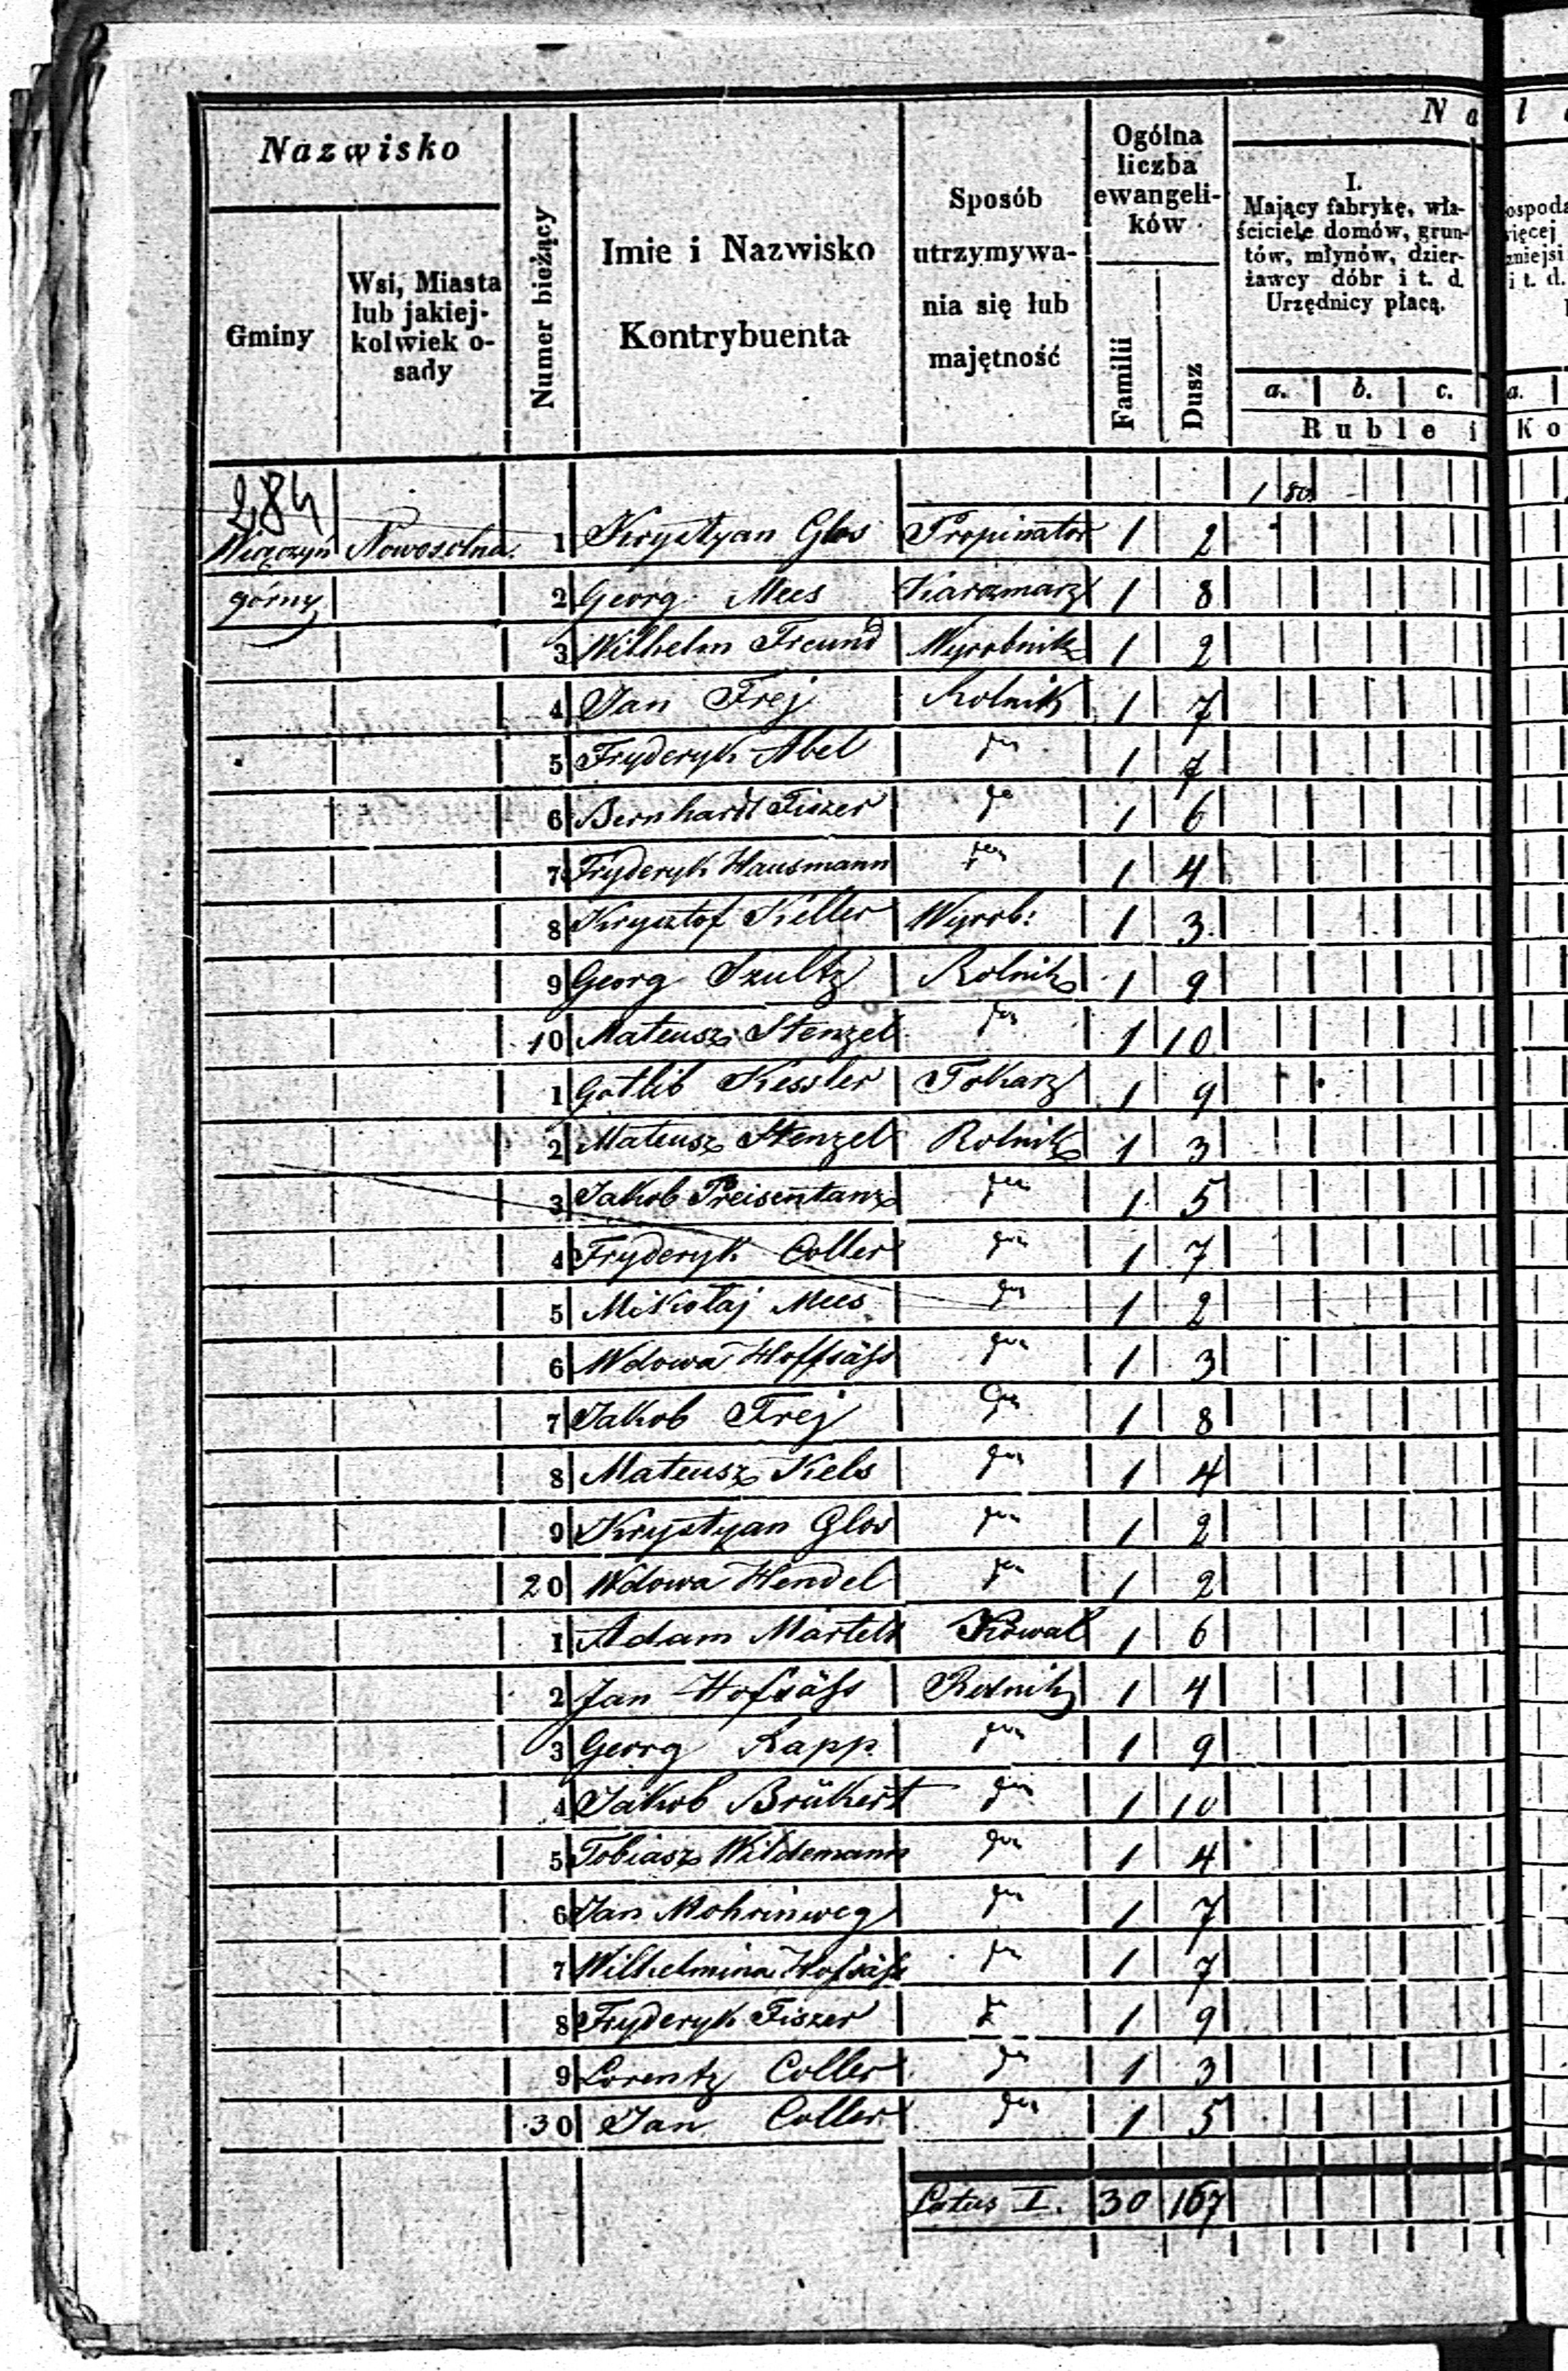 Nazwisko
Gminy
Wsi, Miasta
lub jakiej-
kolwiek o-
sady
Numer bieżący
Imie i Nazwisko
Kontrybuenta
Sposób
utrzymywa-
nia się lub
majętność
Ogólna
liczba
ewangeli-
ków
Familii
Dusz
Na
I.
Mający fabrykę, wła-
ściciele domów, grun-
tów, młynów, dzier-
żawcy dóbr i t. d.
Urzędnicy płacą.
a. b. c.
Ruble i Ko
284
1 80
Wiączyń Nowosolna 1 Krystyan Glos Propinator 1 2
górny 2 Georg Mees Karczmarz 1 8
3 Wilhelm Freund Wyrobnik 1 2
4 Jan Frej Rolnik 1 7
5 Fryderyk Abel 1 7
6 Bernhardt Fiszer 1 6
7 Fryderyk Hausmann 1 4
8 Krysztof Keller Wyrob: 1 3
9 Georg Szultz Rolnik 1 9
10 Mateusz Stenzel 1 10
1 Gotlib Kessler Tokarz 1 9
2 Mateusz Stenzel Rolnik 1 3
3 Jakob Preisentanz 1 5
4 Fryderyk Coller 1 7
5 Mikołaj Mees 1 2
6 Wdowa Hoffsäss 1 3
7 Jakob Frej 1 8
8 Mateusz Kels 1 4
9 Krystyan Glos 1 2
20 Wdowa Hendel 1 2
1 Adam Martels Kowal 1 6
2 Jan Hofsäss Rolnik 1 4
3 Georg Rapp 1 9
4 Jakob Brükert 1 10
5 Tobiasz Wildemann 1 4
6 Jan Mohrinweg 1 7
7 Wilhelmina Hofsäss 1 7
8 Fryderyk Fiszer 1 9
9 Lorentz Coller 1 3
30 Jan Coller 1 5
Latus I. 30 167